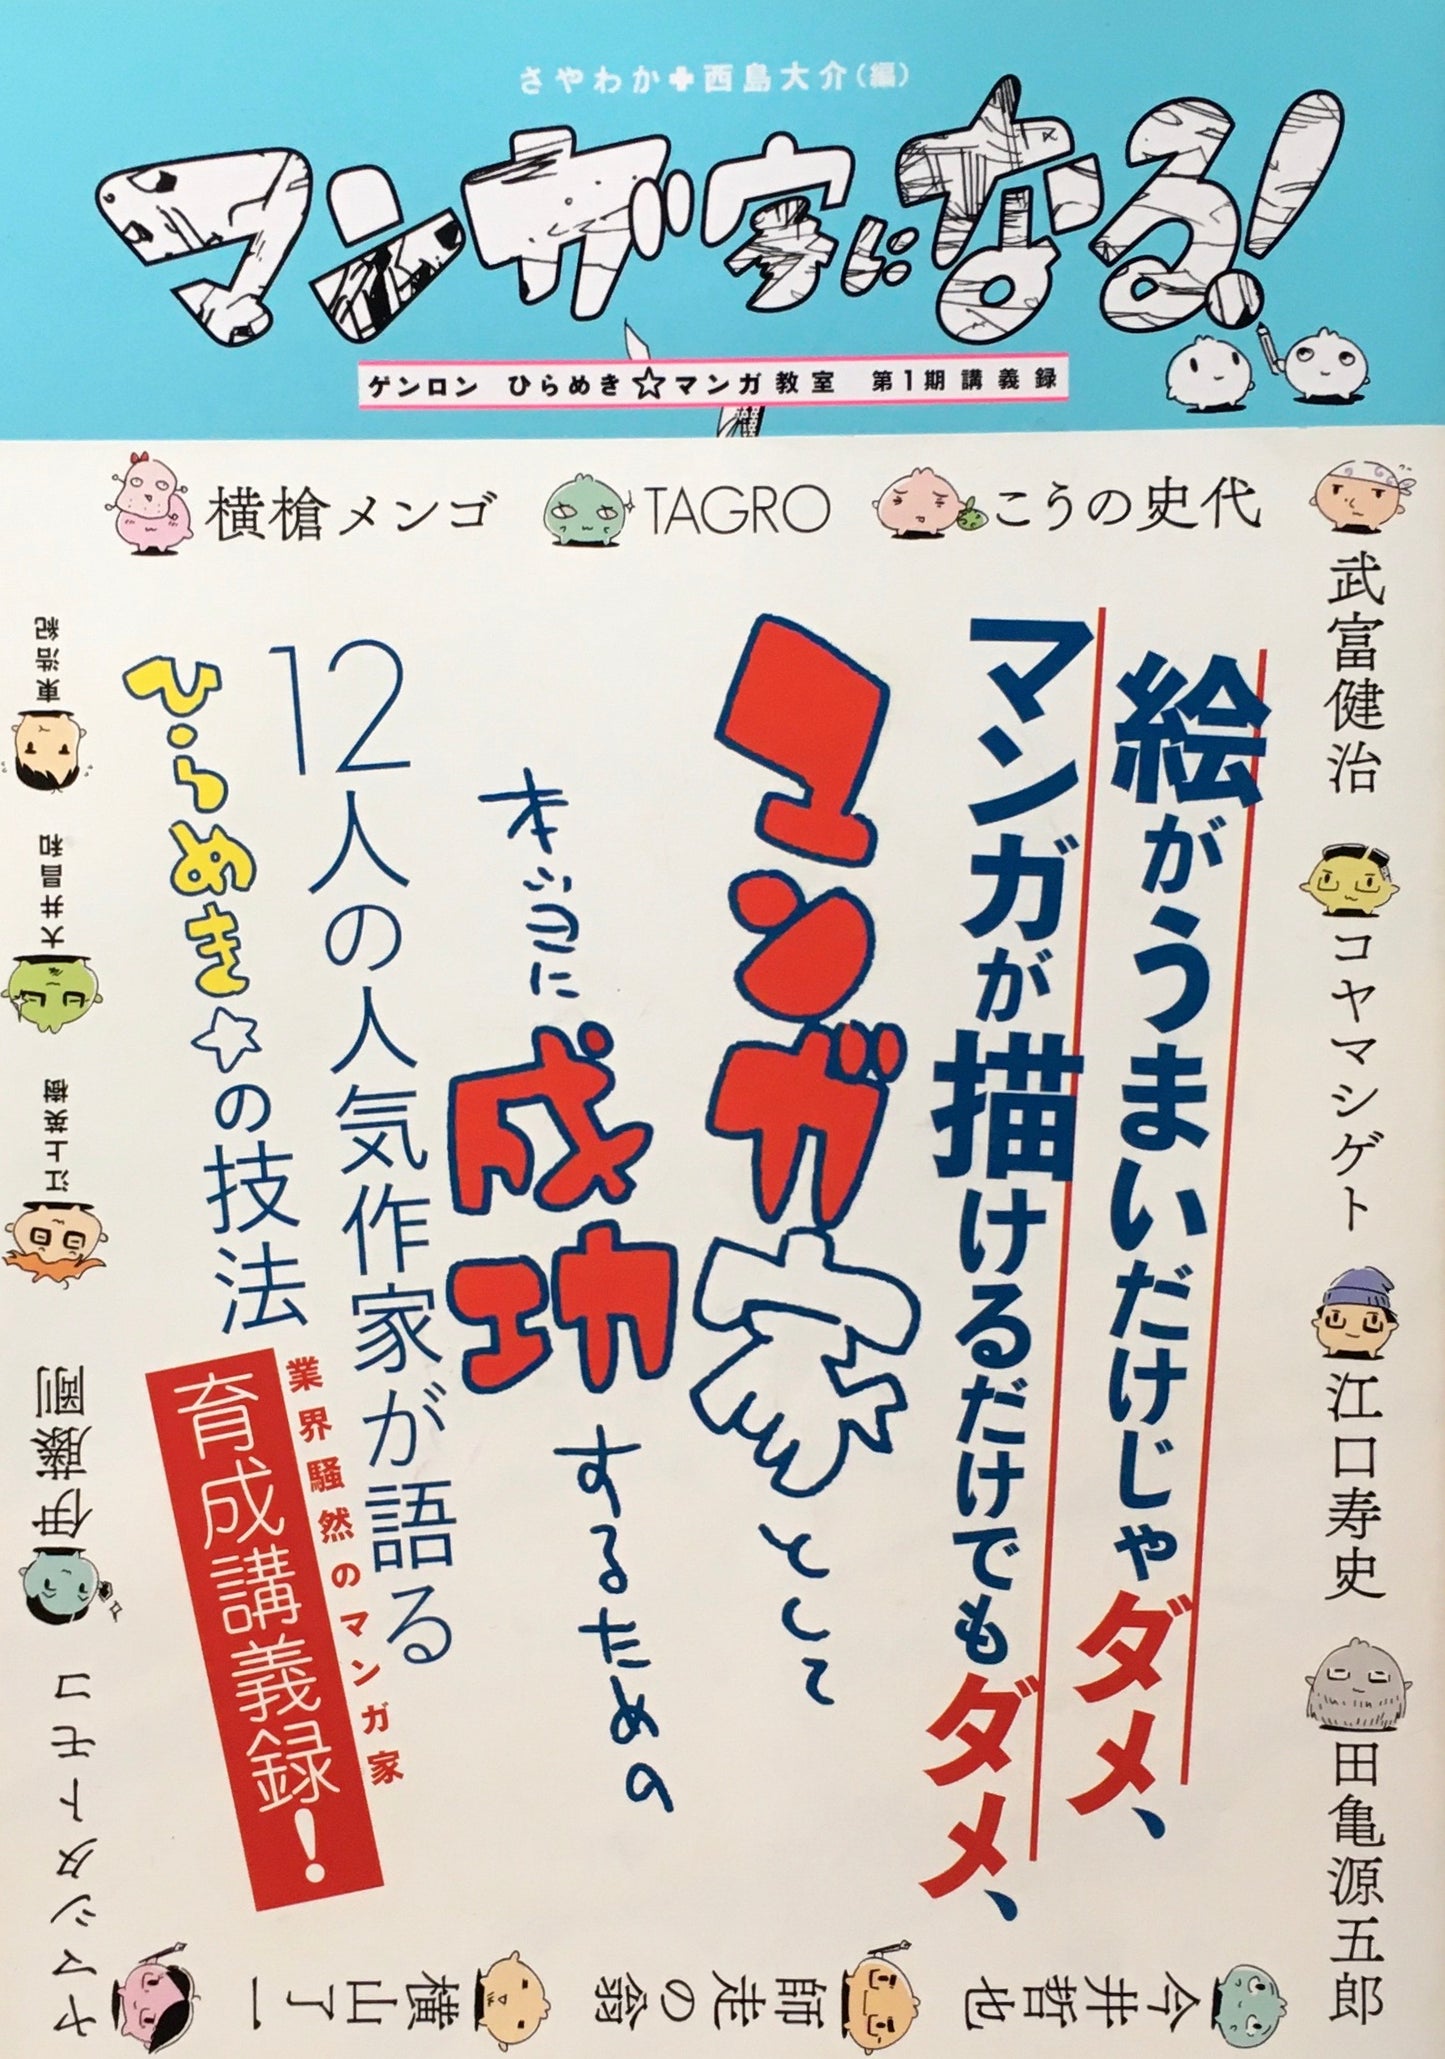 さやわか+西島大介(編)
マンガ家になる!
ゲンロン ひらめき☆マンガ教室 第1期講義録
横槍メンゴ
TAGRO
こうの史代
武富健治
コヤマシゲト
江口寿史
田亀源五郎
今井哲也
師走の翁
横山了一
ヤマシタトモコ
伊藤剛
江上英樹
大井昌和
東浩紀
絵がうまいだけじゃダメ、
マンガが描けるだけでもダメ、
マンガ家として
本当に成功するための
12人の人気作家が語る
ひらめき☆の技法
業界騒然のマンガ家
育成講義録!